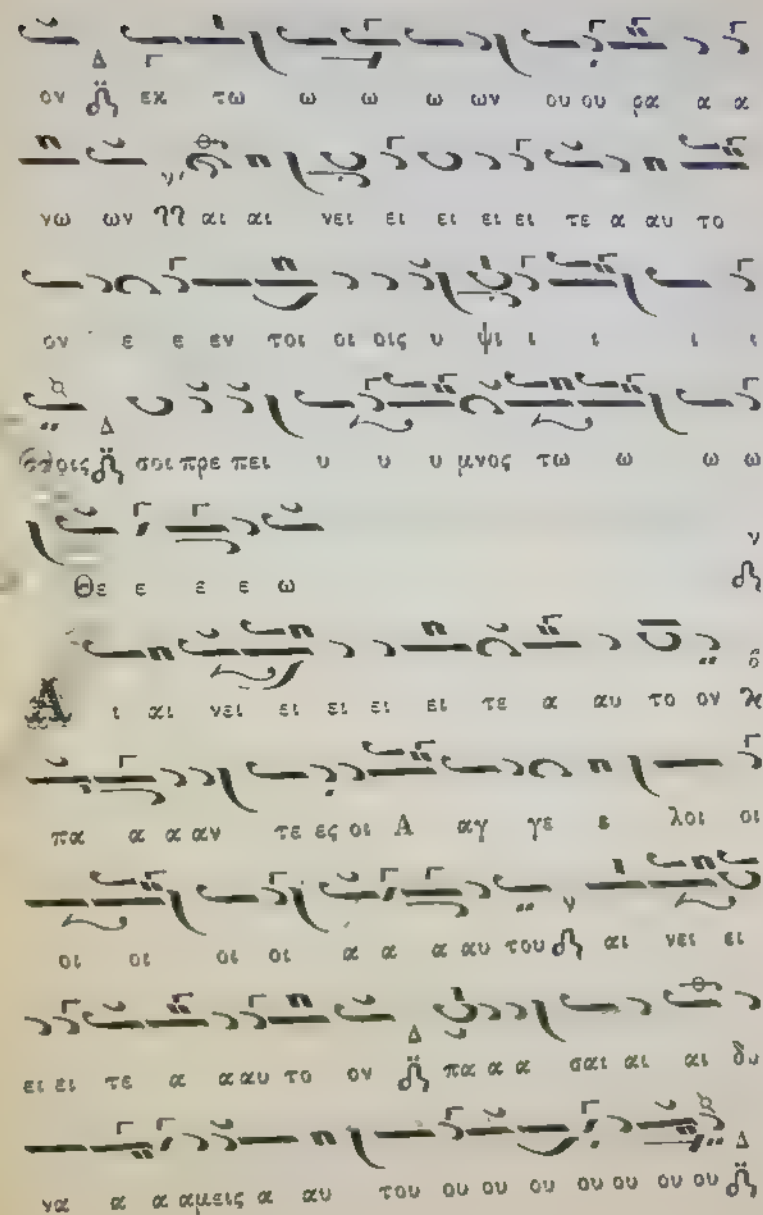 ον Δ εκ τω ω ω ω ων ου ου ρα α α
νω ων αι αι νει ει ει ει ει τε α αυ το
ον ε ε εν τοι οι οις υ ψι ι ι ι ι
στοις Δ σοι πρε πει υ υ υ μνος τω ω ω ω
Θε ε ε ε ω ν
Α ι αι νει ει ει ει ει τε α αυ το ον δ
πα α α αν τε ες οι Α αγ γε ε λοι οι
οι οι οι οι α α α αυ του ν αι νει ει
ει ει τε α α αυ το ον Δ πα α α σαι αι αι δυ
να α α αμεις α αυ του ου ου ου ου ου ου ου Δ